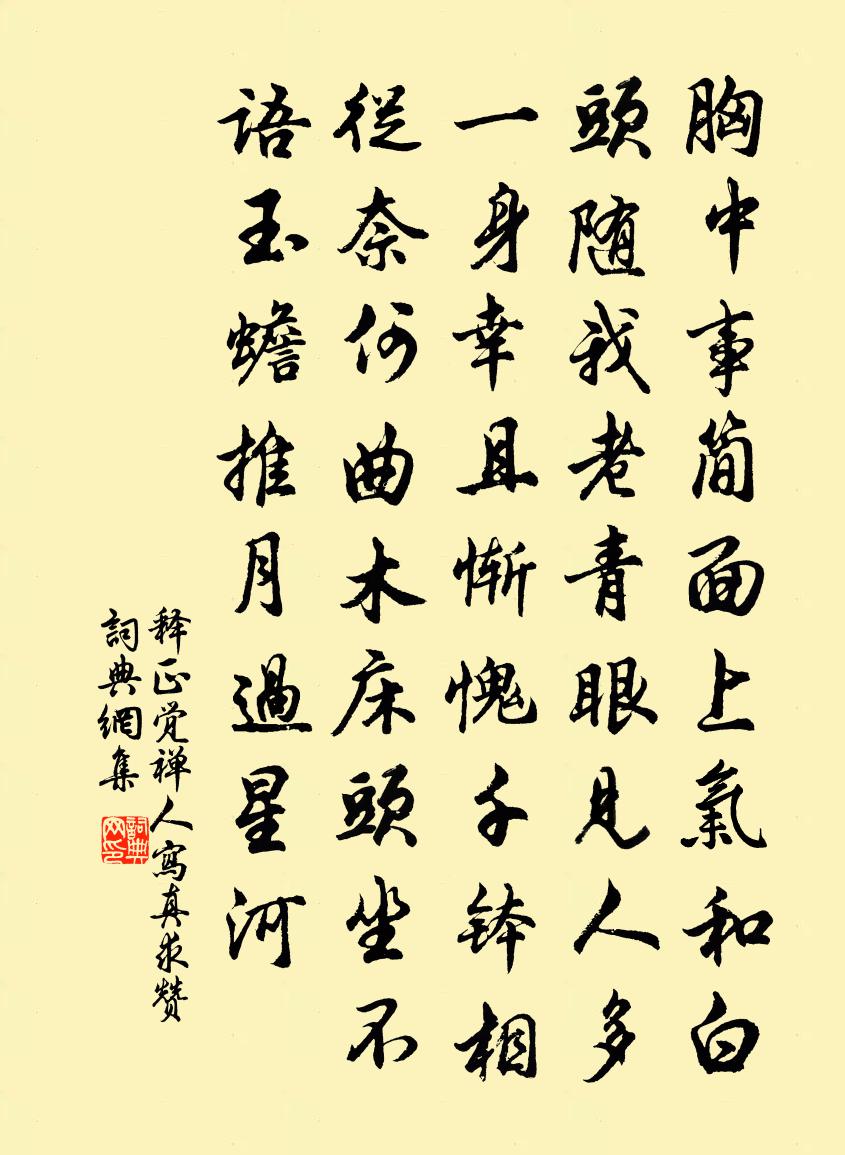 胸中事简面上氣和白
頭随我老青眼見人多
一身幸且惭愧千钵相
從奈何曲木床頭坐不
語玉蟾推月過星河
释正觉禅人寫真求赞
詞典網集
詞典網印